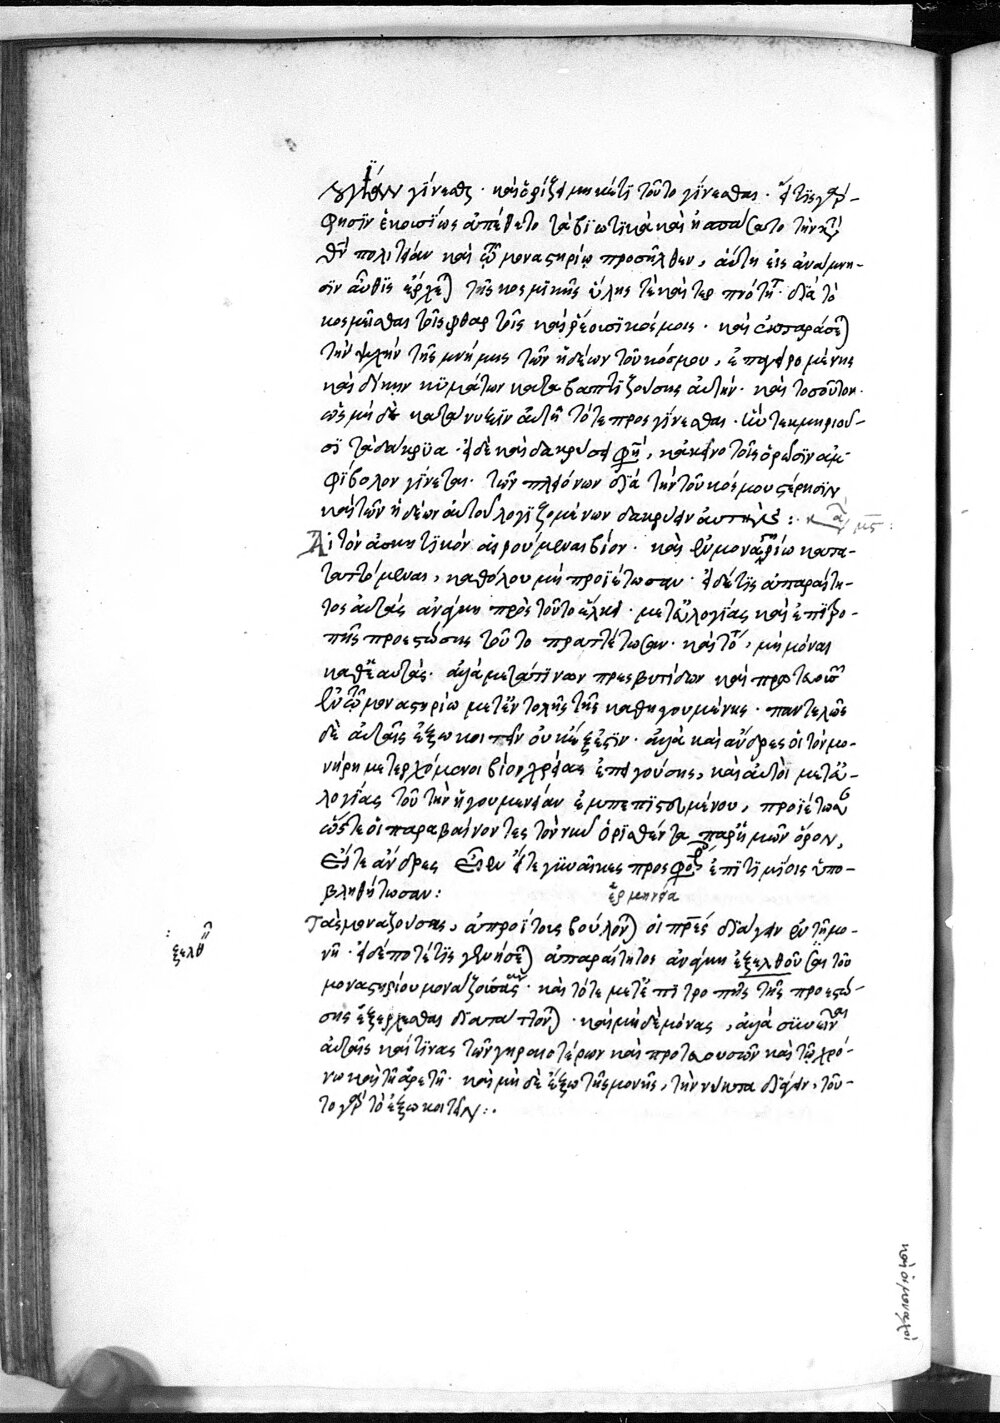 γίνεσθαι· καὶ ὁρίζει μηκέτι τοῦτο γίνεσθαι· εἴ τις γάρ
φησιν ἑκουσίως ἀπέθετο τὰ βιωτικὰ καὶ ἠσπάσατο τὴν κατὰ
θν πολιτείαν καὶ τῷ μοναστηρίῳ προσῆλθεν, αὕτη εἰς ἀνάμνη-
σιν αὖθις ἔρχεται τῆς κοσμικῆς ὕλης τὲ καὶ τερπνότητος· διὰ τὸ
κοσμεῖσθαι τοῖς φθαρτοῖς καὶ ῥέουσι κόσμοις· καὶ ταράσσεται
τὴν ψυχὴν τῆς μνήμης τῶν ἡδέων τοῦ κόσμου, ἐπαγειρομένης
καὶ δίκην κυμάτων καταβαπτιζούσης αὐτήν· καὶ τοσοῦτον
ὡς μὴ δὲ κατάνυξιν αὐτῇ τότε προσγίνεσθαι· ἣν τεκμηριοῦ-
σι τὰ δάκρυα· εἰ δὲ καὶ δακρύσει φησὶ, κἀκεῖνο τοῖς ὁρῶσιν ἀμ-
φίβολον γίνεται· τῶν πλειόνων διὰ τὴν τοῦ κόσμου στέρησιν
καὶ τῶν ἡδέων αὐτοῦ λογιζομένων δακρύειν αὐτήν:
Αἱ τὸν ἀσκητικὸν αἱρούμεναι βίον· καὶ ἐν μοναστηρίῳ κατα-
ταττόμεναι, καθόλου μὴ προϊέτωσαν· εἰ δέ τις ἀπαραίτη-
τος αὐτὰς ἀνάγκη πρὸς τοῦτο ἕλκει· μετ εὐλογίας καὶ ἐπιτρο-
πῆς προεστώσης τοῦτο πραττέτωσαν· καὶ τότε, μὴ μόναι
καθ ἑαυτάς· ἀλλὰ μετά τινων πρεσβυτίδων καὶ πρωτευουσῶν
ἐν τῷ μοναστηρίῳ μετ ἐντολῆς τῆς καθηγουμένης· παντελῶς
δὲ αὐταῖς ἔξω κοιτεῖν οὐκ ἔξεστιν· ἀλλὰ καὶ ἄνδρες οἱ τὸν μο-
νήρη μετερχόμενοι βίον χρείας ἐπειγούσης, καὶ αὐτοὶ μετ εὐ-
λογίας τοῦ τὴν ἡγουμενείαν ἐμπεπιστευμένου, προϊέτωσαν
ὥστε οἱ παραβαίνοντες τὸν νῦν ὁρισθέντα παρ ἡμῶν ὅρον,
εἴτε ἄνδρες εἶεν εἴτε γυναῖκες προσφόροις ἐπιτιμίοις ὑπο-
βληθήτωσαν:
ἑρμηνεία
Τὰς μοναζούσας, ἀπροΐτους βούλονται οἱ πρες διάγειν ἐν τῇ μο-
νῇ· εἰ δέ ποτέ τις γενήσεται ἀπαραίτητος ἀνάγκη ἐξελθοῦσαι τοῦ
μοναστηρίου μοναζούσας· καὶ τότε μετ ἐπιτροπῆς τῆς προεστώ-
σης ἐξέρχεσθαι διαπάττονται· καὶ μὴ δὲ μόνας, ἀλλὰ συνεῖναι
αὐταῖς καί τινας τῶν γηραιοτέρων καὶ πρωτευουσῶν καὶ τῷ χρό-
νῳ καὶ τῇ ἀρετῇ· καὶ μὴ δὲ ἔξω τῆς μονῆς, τὴν νύκτα διάγειν, τοῦ-
το γὰρ τὸ ἔξω κοιτεῖν:
ἐξελθ
καὶ οἱ μοναχοὶ